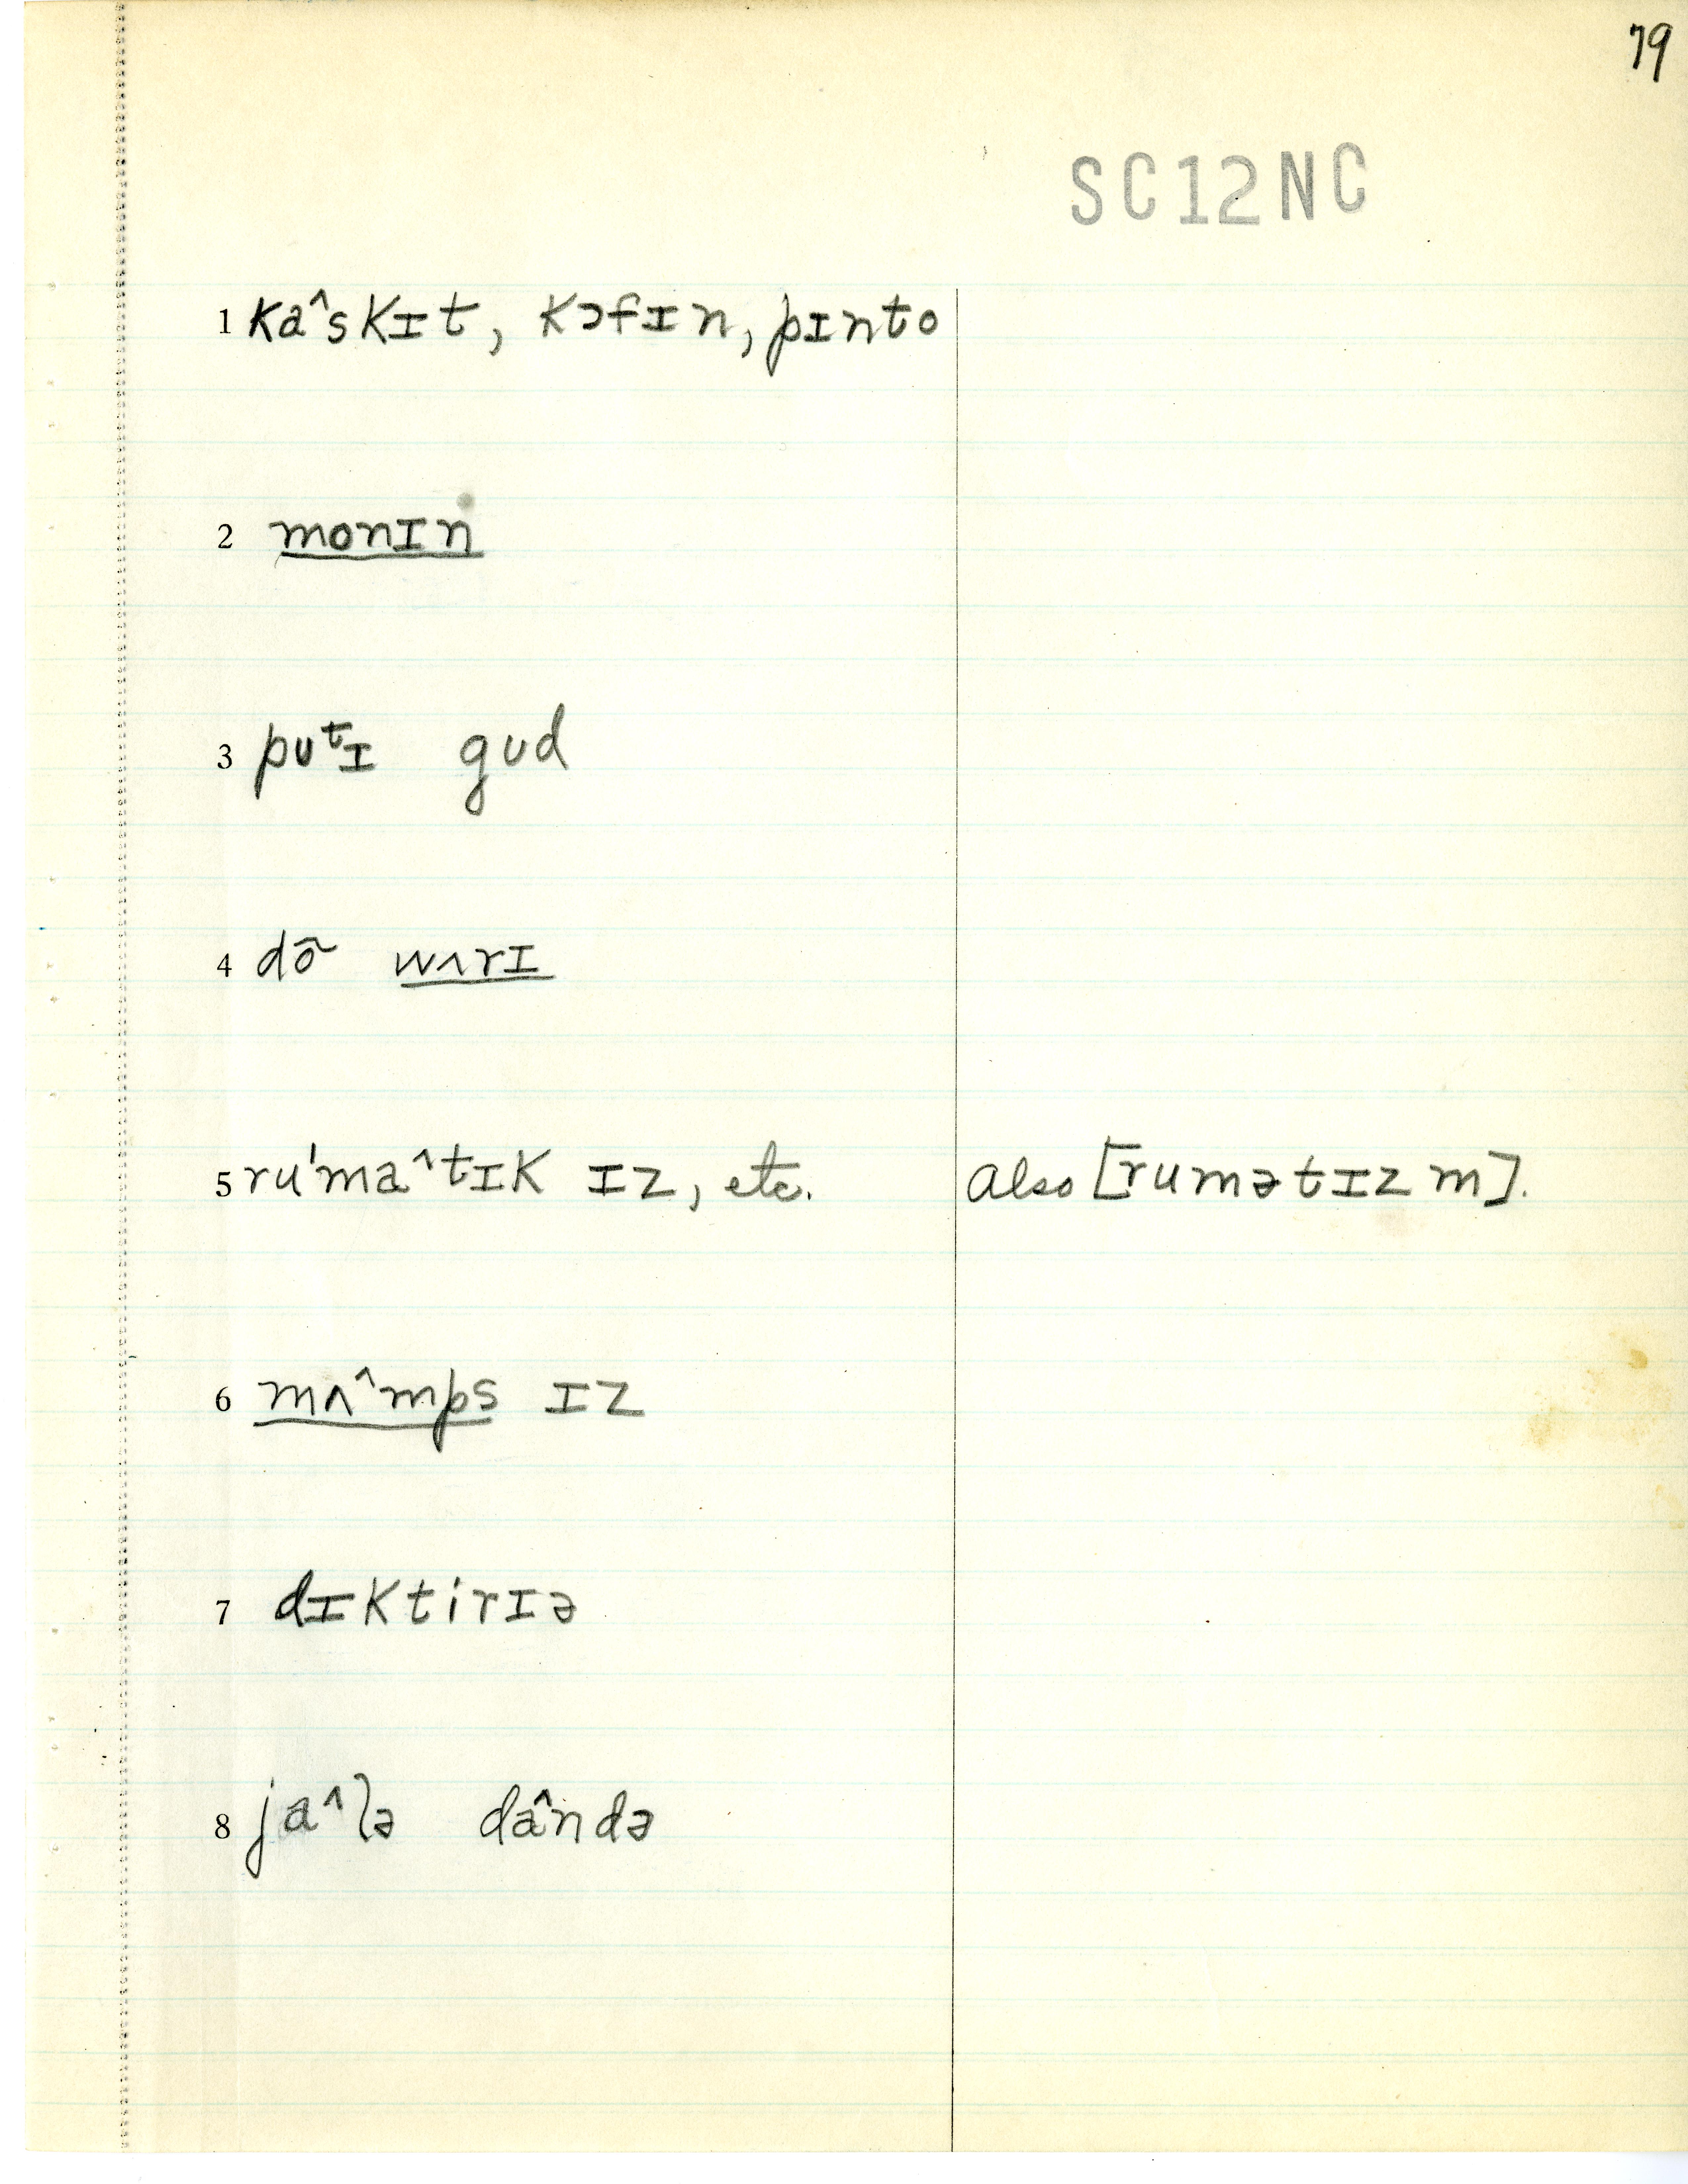 79
SC12NC
1 ka^skɪt, kɔfɪn, pɪnto
2 monɪn
3 puᵗɪ gud
4 dõ wʌrɪ
5 ru'ma^tɪk ɪz, etc. also [rumətɪzm].
6 mʌ^mps ɪz
7 dɪktirɪə
8 ja^lə dândə